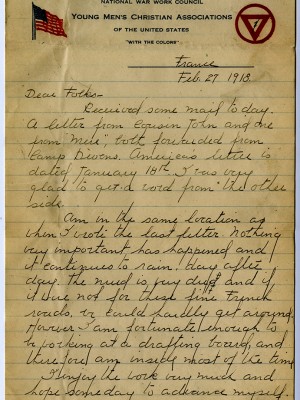 NATIONAL WAR WORK COUNCIL
YOUNG MEN'S CHRISTIAN ASSOCIATIONS
OF THE UNITED STATES
"WITH THE COLORS"
France
Feb. 27 1918.
Dear Folks-
Received some mail to-day.
A letter from Cousin John and one
from both forwarded from
Camp Devens. letter is
dated January 18th. I was very
glad to get a word from the other
side.
Am in the same location as
when I wrote the last letter. Nothing
very important has happened and
it continues to rain day after
day. The mud is very deep and if
it were not for these fine French
roads, we could hardly get around.
However I am fortunate enough to
be working at a drafting board, and
therefore am inside most of the time.
I enjoy the work very much and
hope someday to advance myself.